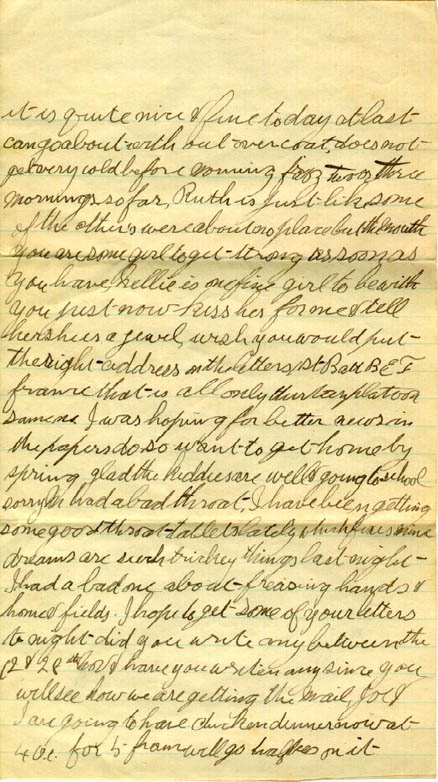 it is quite nice & fine today at last
can go about with out overcoat, does not
get very cold before morning froze two or three
mornings so far, Ruth is just like some
of the others were about no place but the mouth
you are some girl to get strong as soon as
you have, Nellie is one fine girl to be with
you just now kiss her for me & tell
her she is a jewel, wish you would put
the right address on the letters, 1st Batt B.E.F
france that is all only thirteen platoon
same no. I was hoping for better news in
the papers do so want to get home by
spring, glad the kiddies are well & going to school
sorry had a bad throat, I have been getting
some good throat tablets lately which fixes mine
dreams are such trickey things last night
I had a bad one about freasing hands &
home & fields. I hope to get some of your letters
to night did you write any between the
12 & 20th Nov & have you writen any since you
will see how we are getting the mail, Joe &
I are going to have chicken dinner now at
4 Oc. for 5 franc will go halfves on it